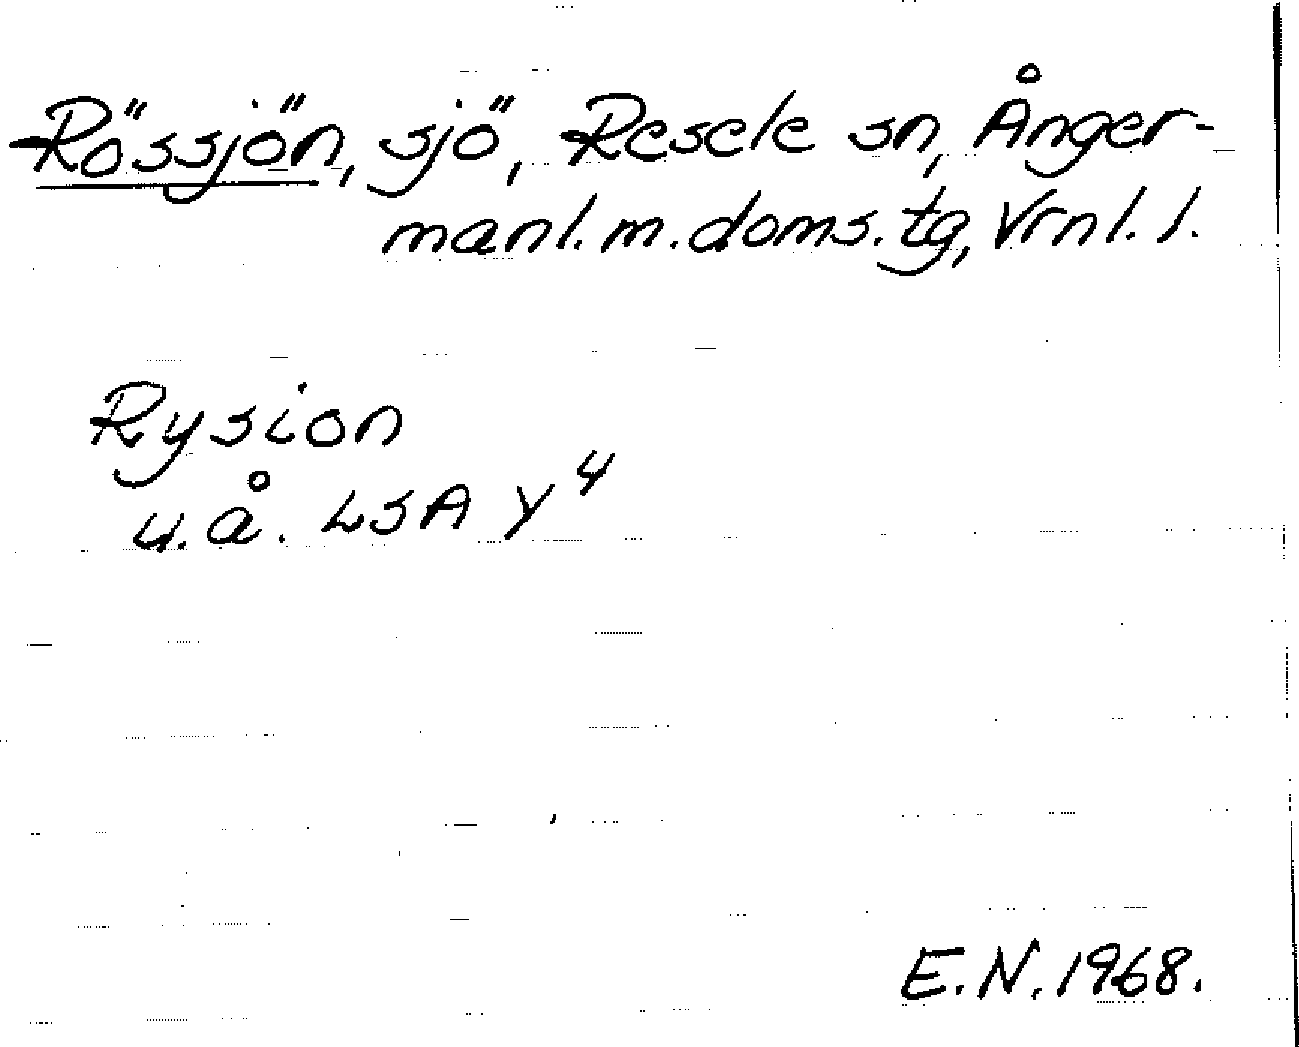 Rössjön, sjö, Resele sn, Ånger-
manl. m. doms. tg, Vrnl. l.
Rysion
u.å. LSA Y4
E.N. 1968.